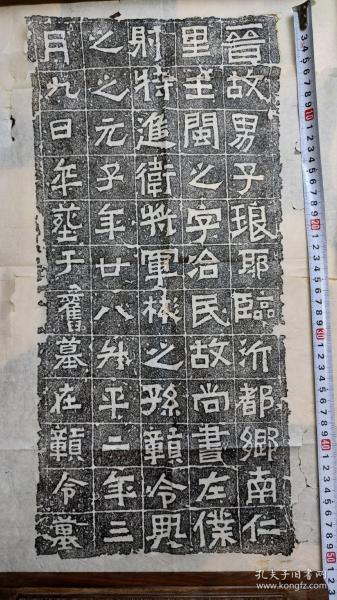 晉故男子琅耶臨沂都鄉南仁
里王閩之字冶民故尚書左僕
射特進衛將軍彬之孫贛令興
之之元子年廿八升平二年三
月九日卒葬于舊墓在贛令墓
孔夫子旧书网